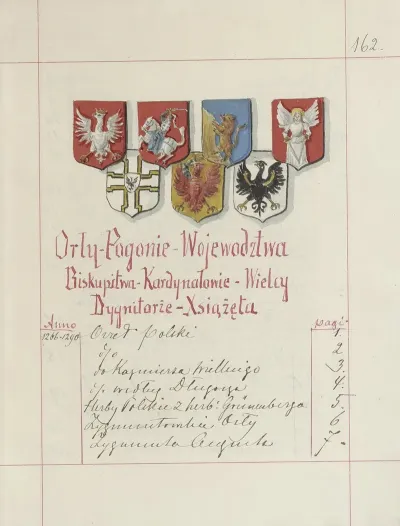 162.
Orły-Pogonie-Województwa
Biskupstwa-Kardynałowie-Wielcy
Dygnitarze-Xsiążęta
Anno
pag:
1206-1290 Orzeł Polski 1
d/o 2
do Kazimierza Wielkiego 3.
d/o według Długosza 4.
Herby Polskie z herb: Grünenberga 5
Zygmuntowskie Orły 6
Zygmunta Augusta 7